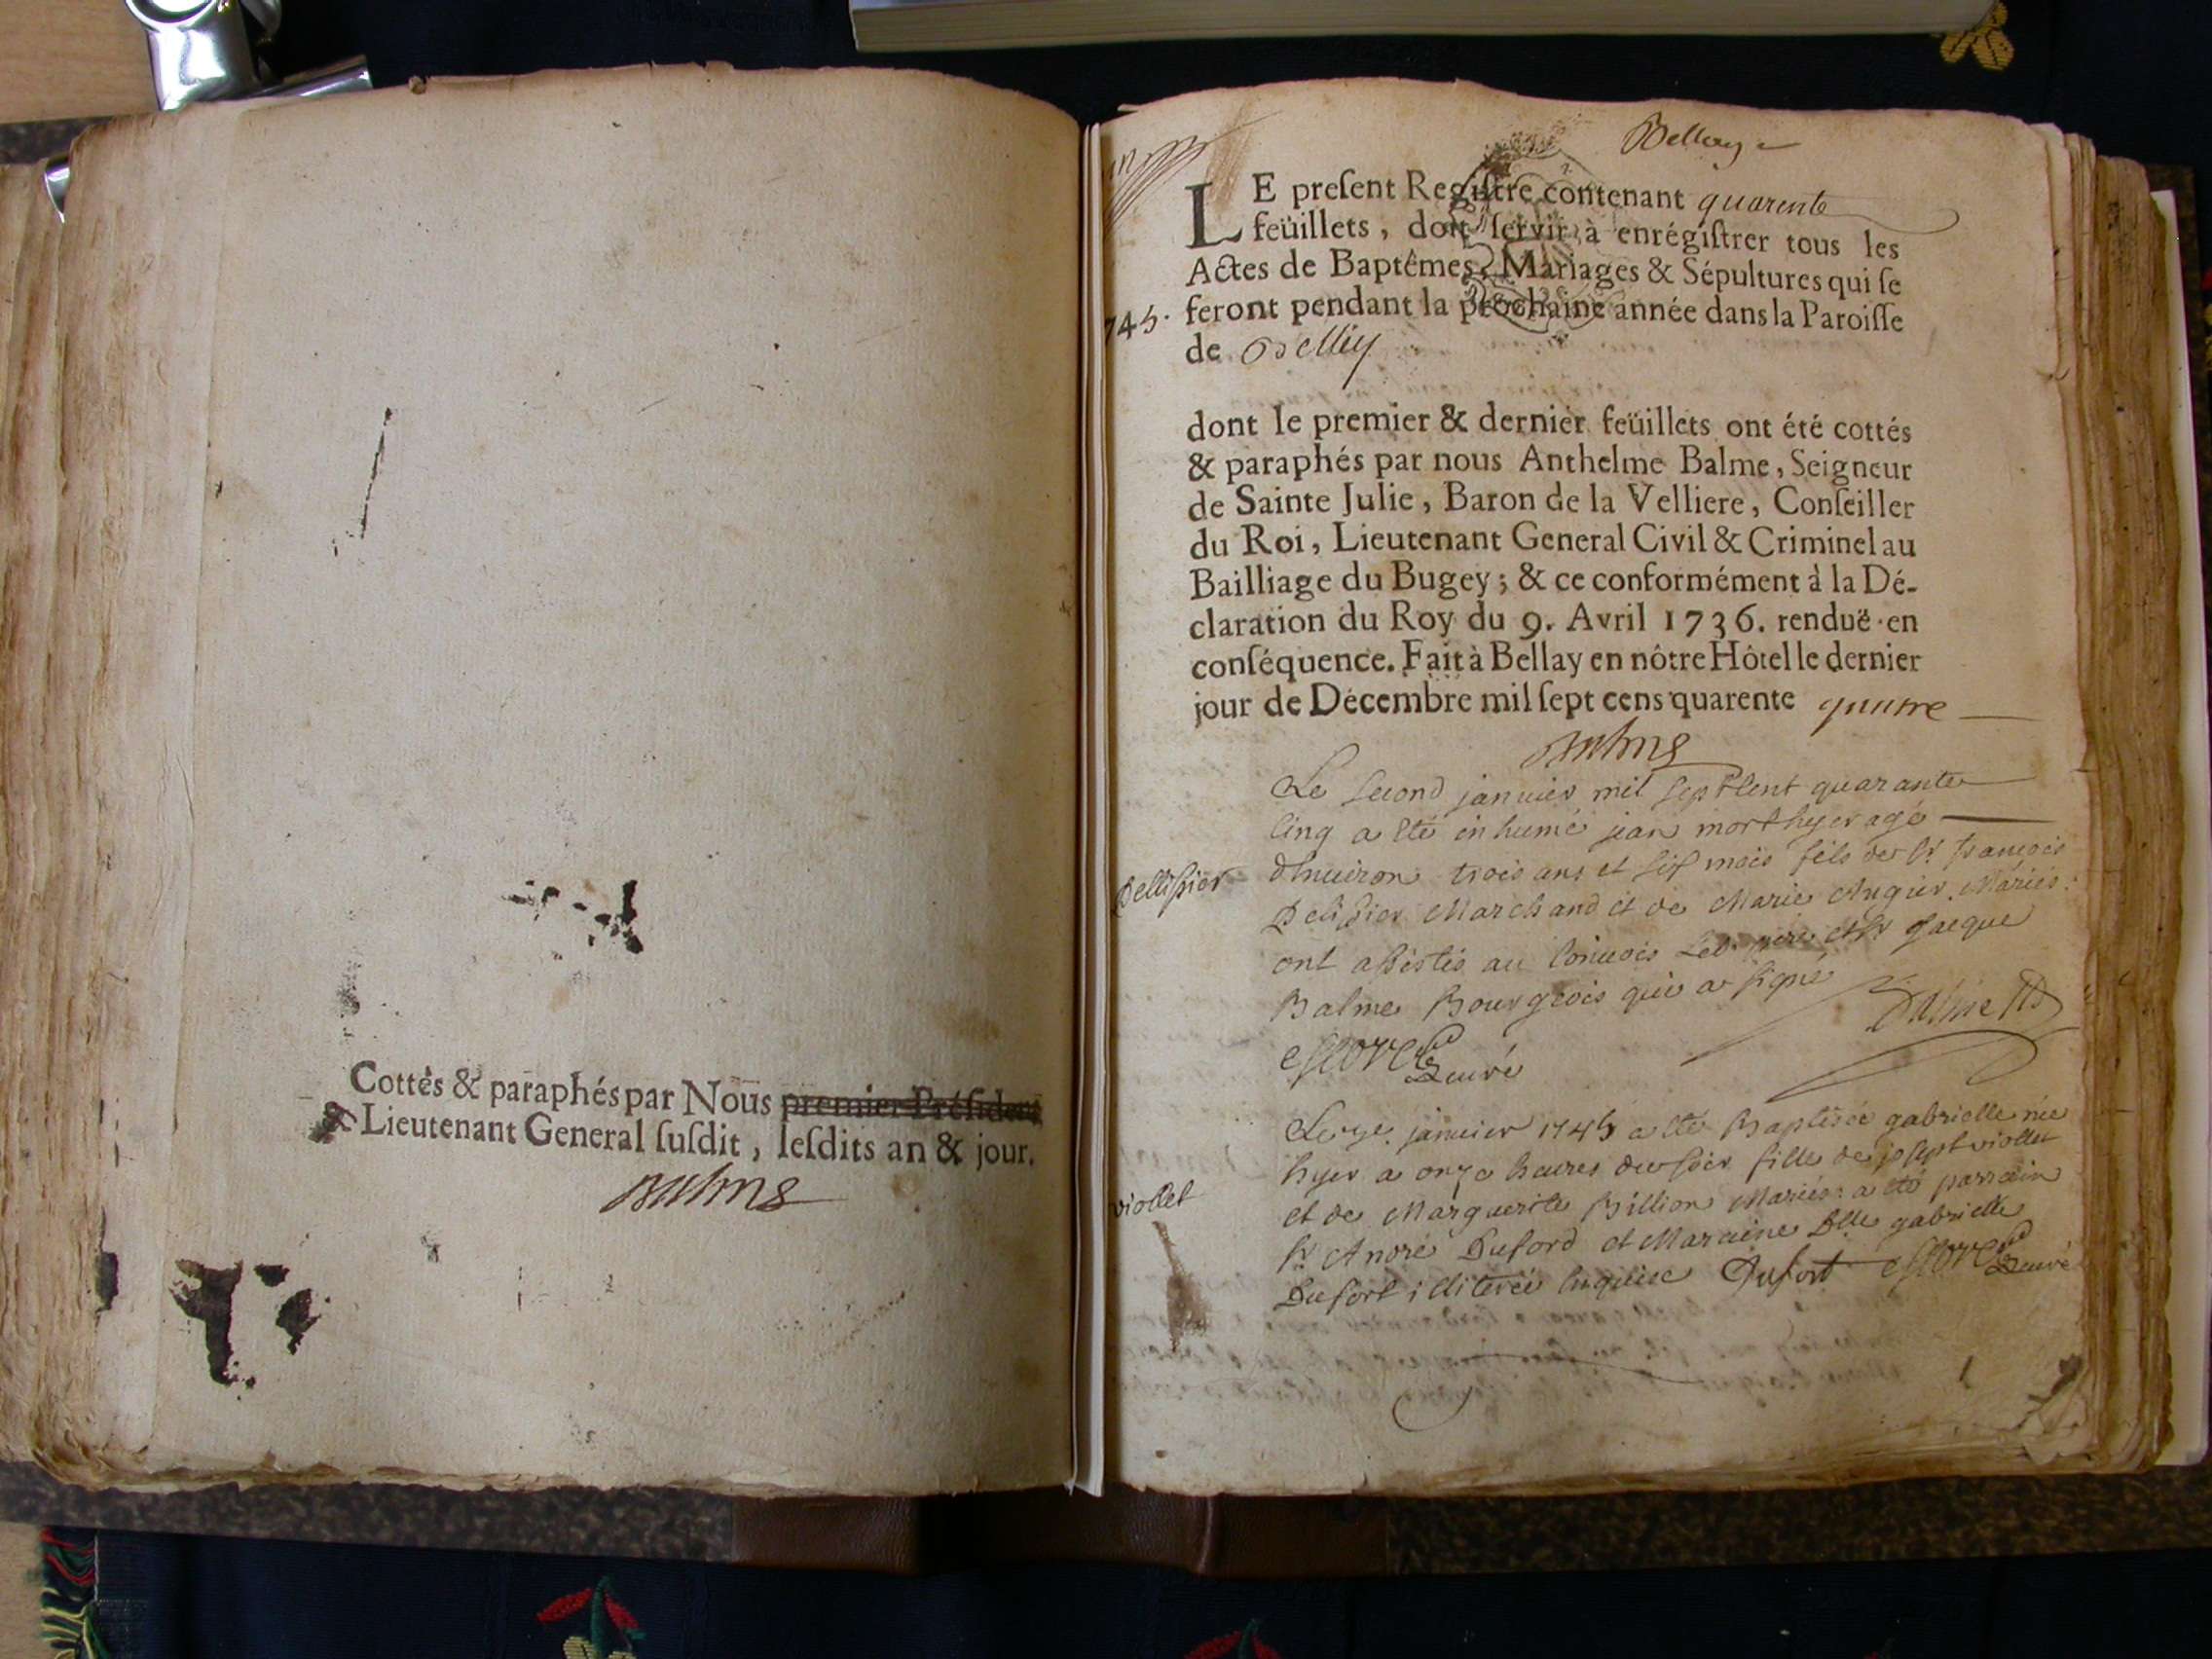 Cottés & paraphés par Nous premier Président
& Lieutenant General ſuſdit, leſdits an & jour.
Balme
Bellay
LE preſent Regiſtre contenant quarente
feüillets, doit ſervir à enrégiſtrer tous les
Actes de Baptêmes, Mariages & Sépultures qui ſe
745. feront pendant la prochaine année dans la Paroiſſe
de Belley
dont le premier & dernier feüillets ont été cottés
& paraphés par nous Anthelme Balme, Seigneur
de Sainte Julie, Baron de la Velliere, Conſeiller
du Roi, Lieutenant General Civil & Criminel au
Bailliage du Bugey; & ce conformément à la Dé-
claration du Roy du 9. Avril 1736. renduë en
conſéquence. Fait à Bellay en nôtre Hôtel le dernier
jour de Décembre mil ſept cens quarente quatre
Balme
Le second janvier mil sept Cent quarante
Cinq a Eté inhumé jean morthyer agé
Pellissier
d'Enuiron trois ans et six mois fils de Sr. françois
Pelissier Marchand et de Marie Augier Mariés:
ont assistés au Conuois Led. père et Sr Jacque
Balme Bourgeois qui a signé
Balme
Curé
janvier 1745 a Eté Baptisée gabrielle née
hyer a onze heures du soir fille de josept viollet
viollet
et de Marguerite Billion Mariés: a Eté parrain
Sr. André Duford et Maraine Dlle gabrielle
Dufort illiterée Enquise Dufort Curé
1